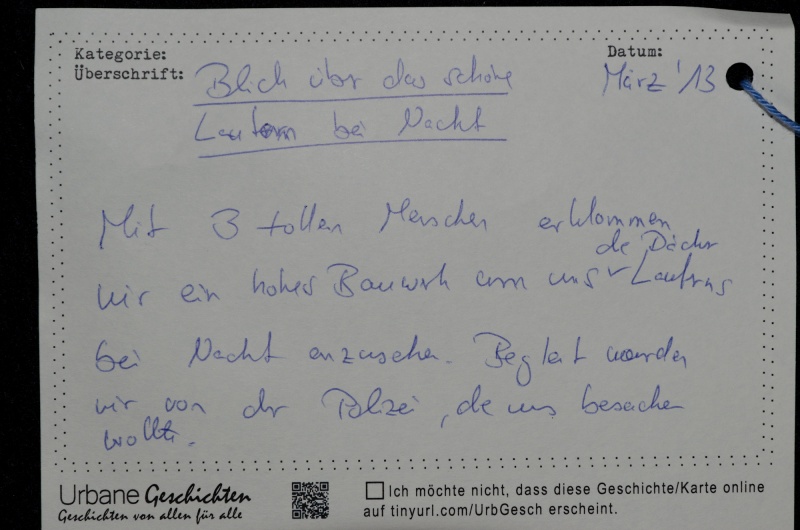 Kategorie:
Datum:
Überschrift: Blick über das schöne
März '13
Lautern bei Nacht
Mit 3 tollen Menschen erklommen
die Dächer
wir ein hohes Bauwerk um uns Lauterns
bei Nacht anzusehen. Begleitet wurden
wir von der Polizei, die uns besuchen
wollte.
Urbane Geschichten
Geschichten von allen für alle
Ich möchte nicht, dass diese Geschichte/Karte online
auf tinyurl.com/UrbGesch erscheint.